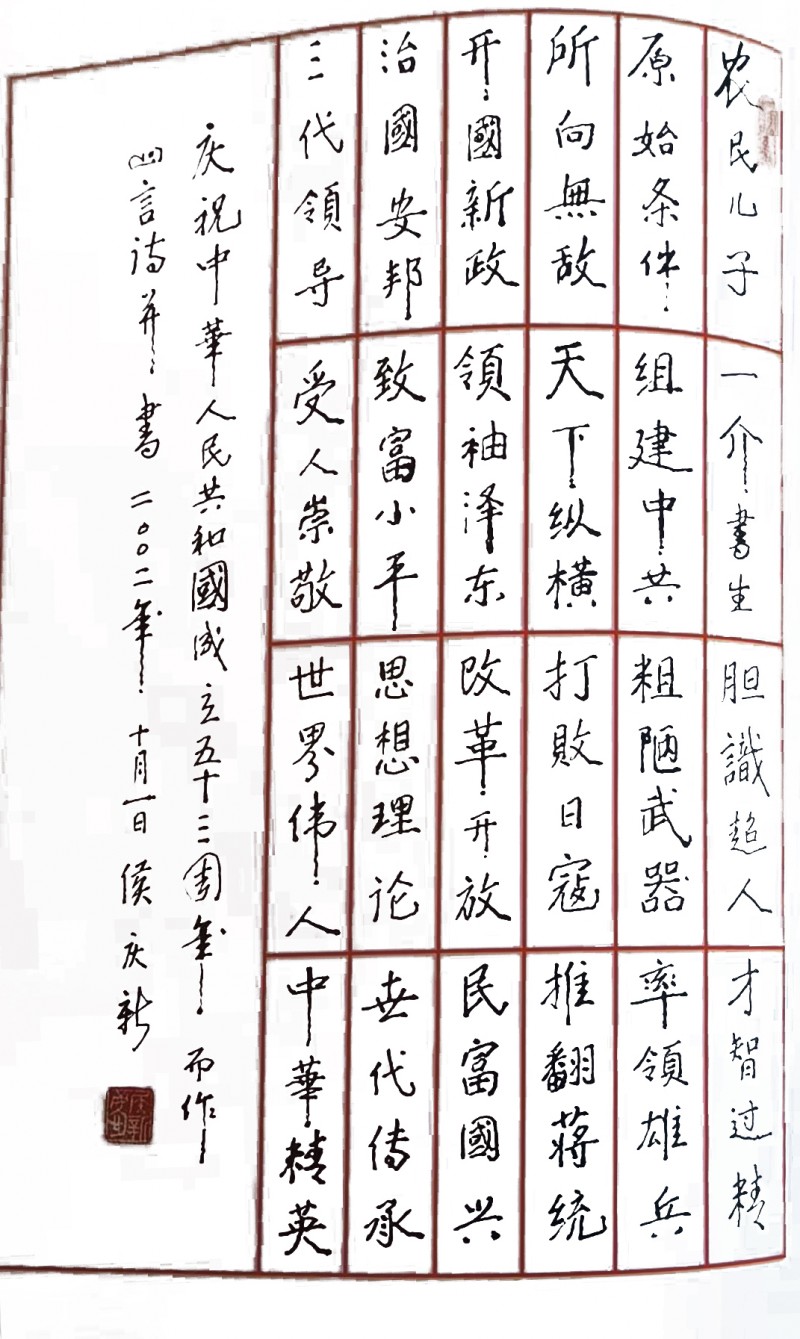 农民儿子 一介書生 胆識超人 才智过精
原始条件 组建中共 粗陋武器 率領雄兵
所向無敌 天下纵横 打敗日寇 推翻蒋统
开國新政 領袖泽东 改革开放 民富國兴
治國安邦 致富小平 思想理论 世代传承
三代領导 受人崇敬 世界伟人 中華精英
庆祝中華人民共和國成立五十三周年而作
四言诗并書 二〇〇二年十月一日 侯庆新